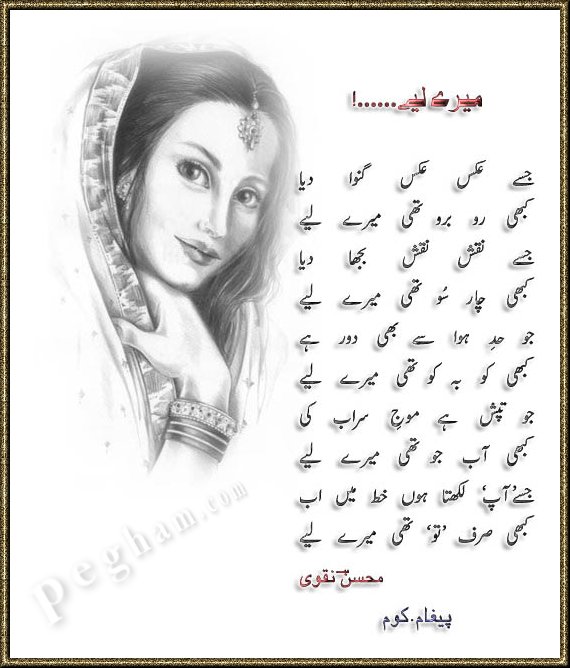 میرے لیے......!
جسے عکس عکس گنوا دیا
کبھی رو برو تھی میرے لیے
جسے نقش نقش بجھا دیا
کبھی چار سُو تھی میرے لیے
جو حدِ ہوا سے بھی دور ہے
کبھی کو بہ کو تھی میرے لیے
جو تپش ہے موجِ سراب کی
کبھی آب جو تھی میرے لیے
جسے ’آپ‘ لکھتا ہوں خط میں اب
کبھی صرف ’تو‘ تھی میرے لیے
محسن نقوی
پیغام.کوم
Pegham.com